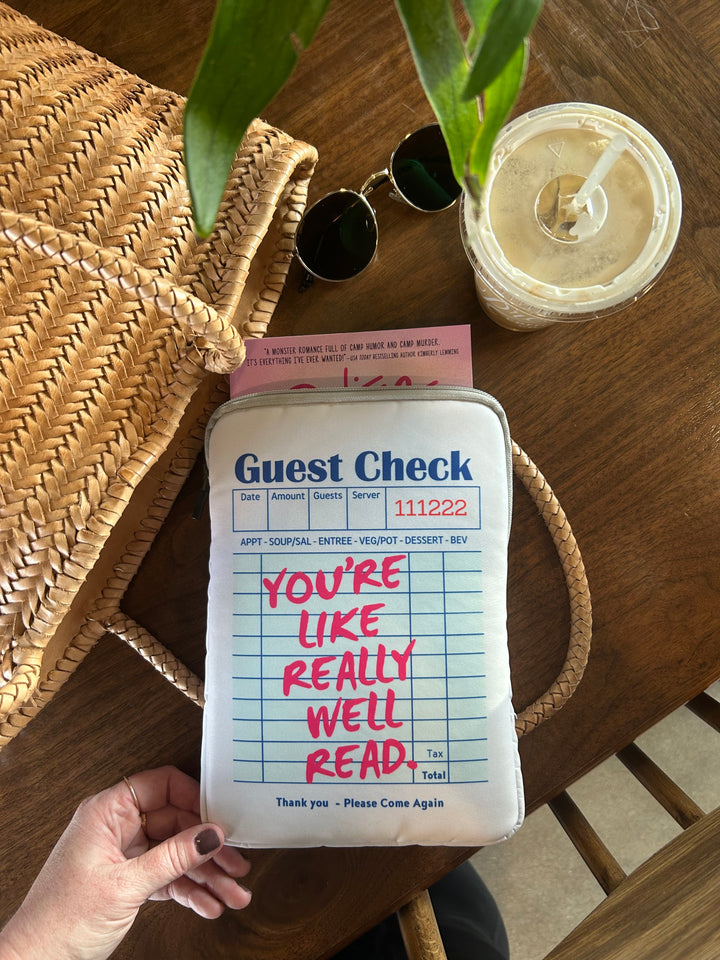 "A MONSTER ROMANCE FULL OF CAMP HUMOR AND CAMP MURDER.
IT'S EVERYTHING I'VE EVER WANTED!"—USA TODAY BESTSELLING AUTHOR KIMBERLY LEMMING
Guest Check
Date Amount Guests Server 111222
APPT - SOUP/SAL - ENTREE - VEG/POT - DESSERT - BEV
YOU'RE
LIKE
REALLY
WELL
READ.
Tax
Total
Thank you - Please Come Again